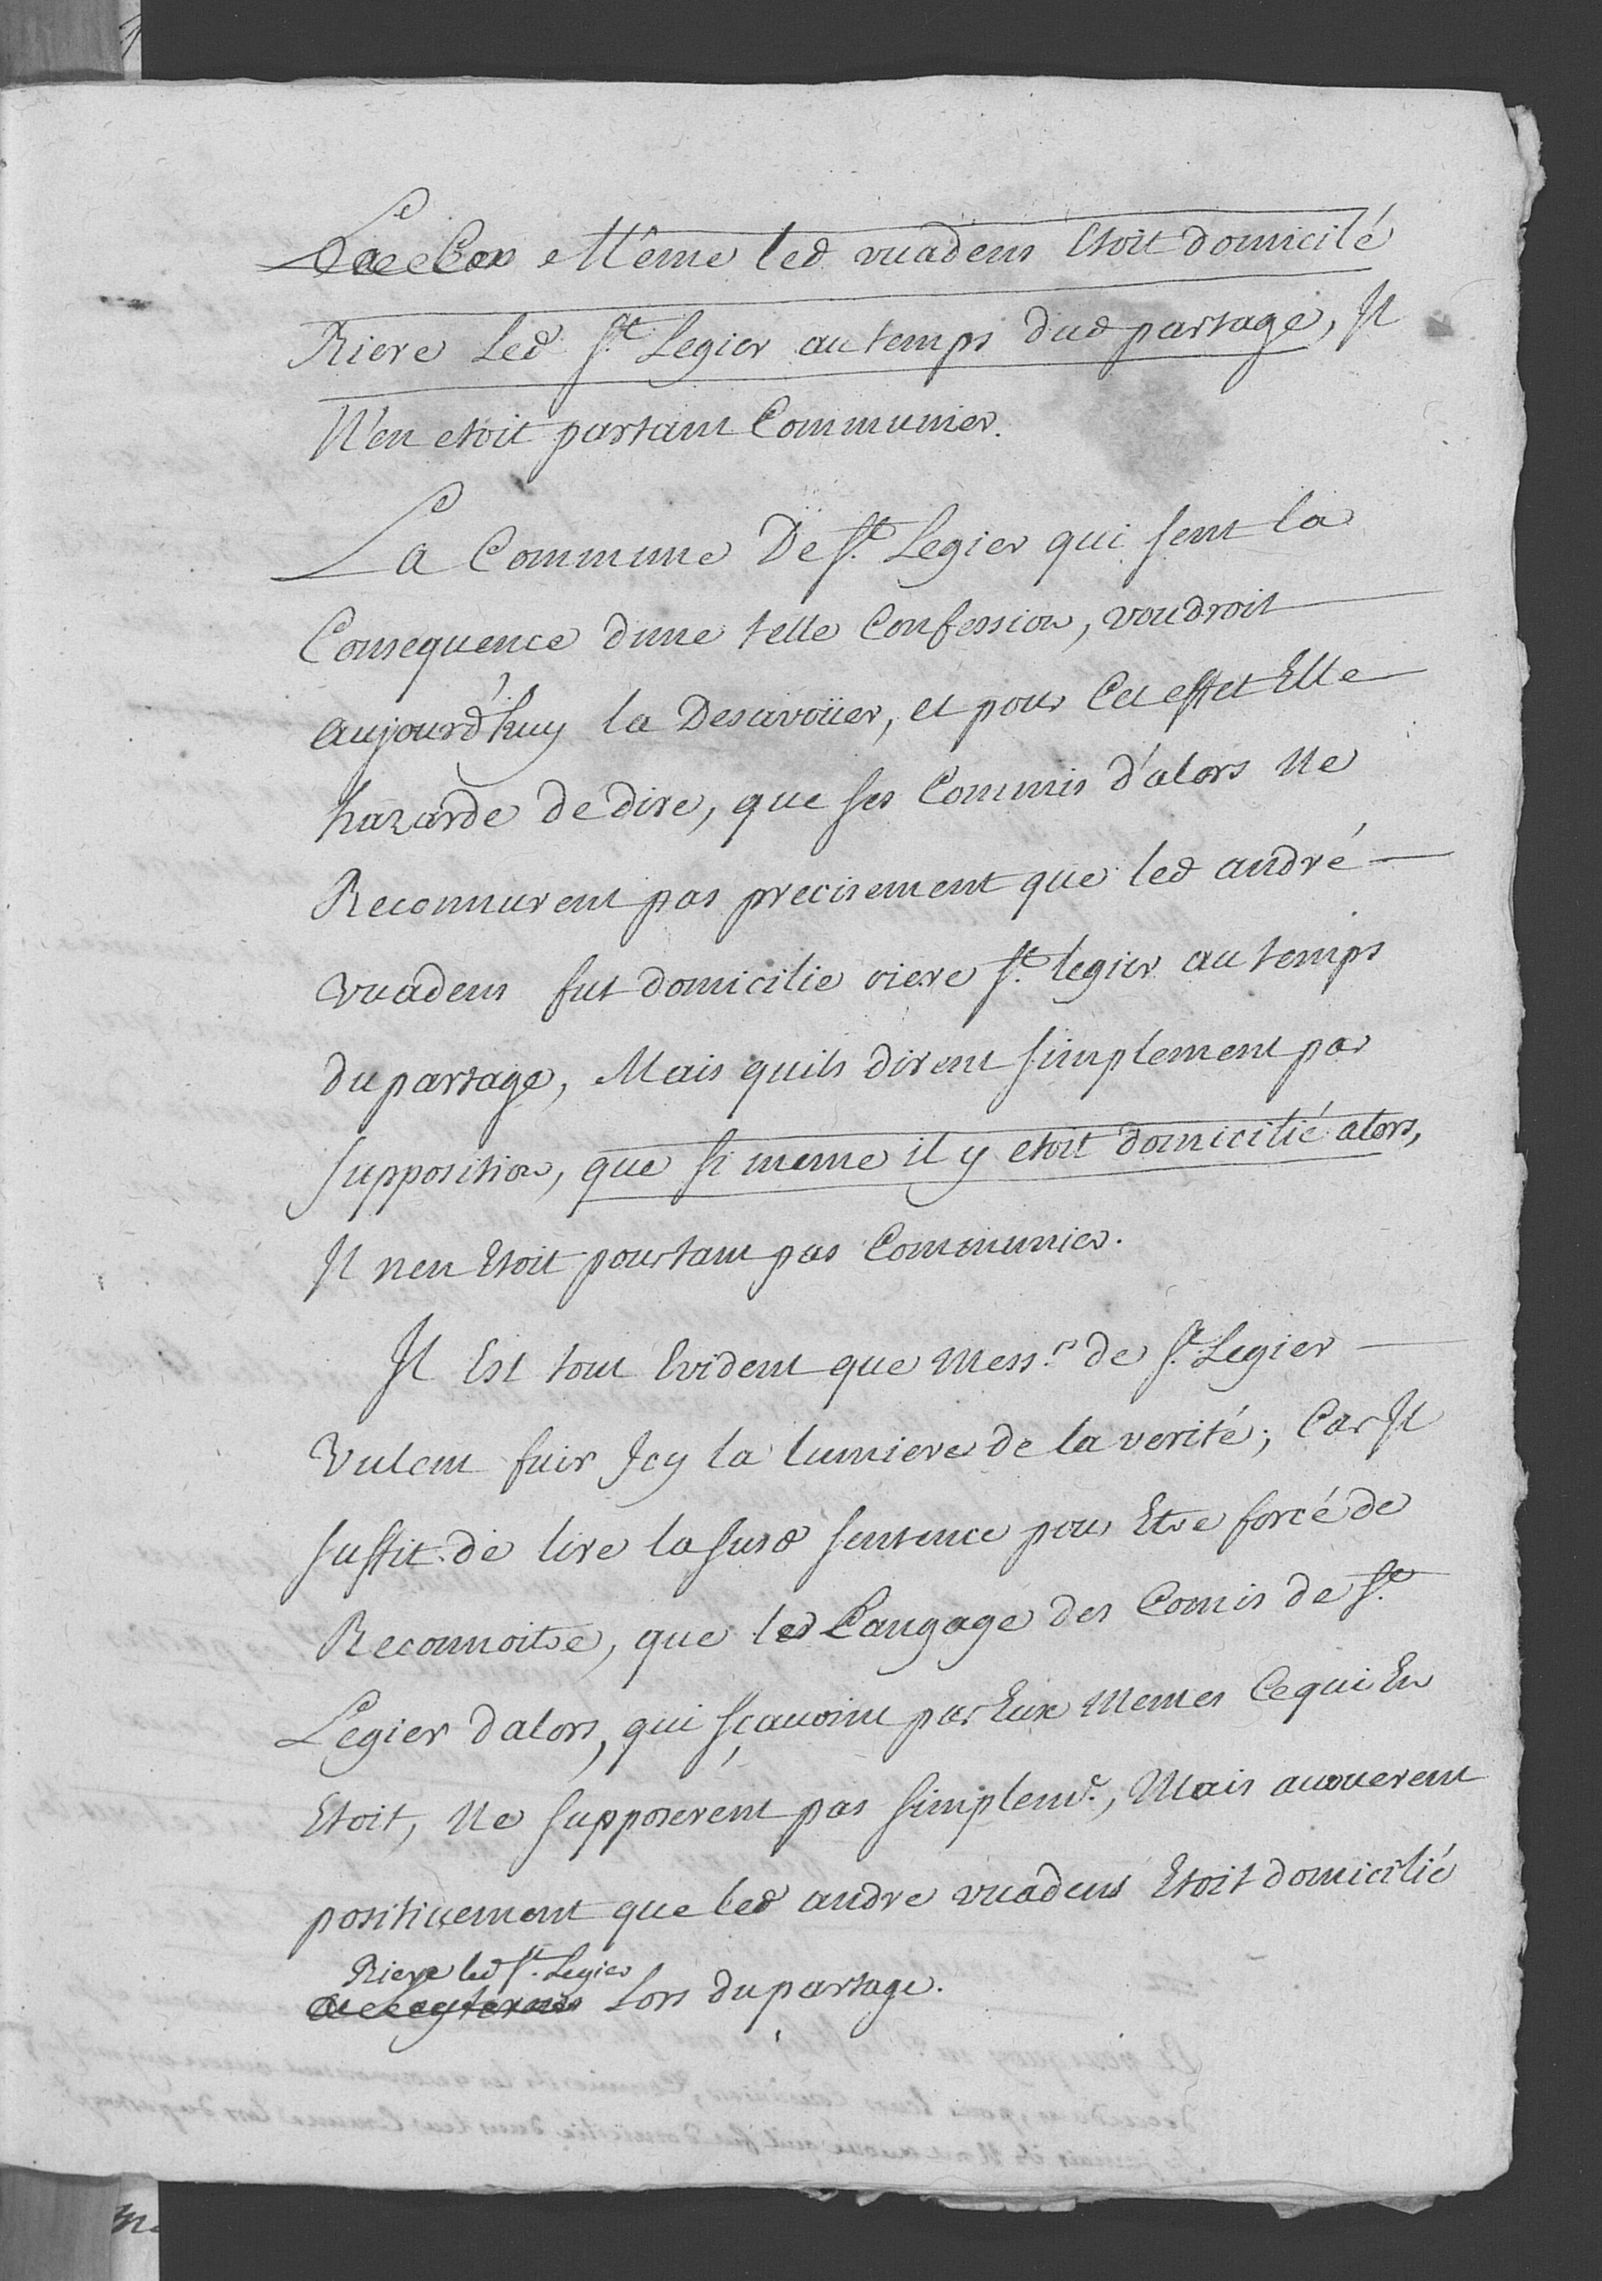 Même led vuadens Etoit domicilé
Riere Led St. Legier au temps dud partage, Il
N'en etoit partant Communier.
La Commune De St. Legier qui sent la
Consequence dune telle Confession, voudroit
aujourd'huy la Desavoüer, et pour Cet effet Elle
hazarde de dire, que ses Commis d'alors Ne
Reconnurent pas precisement que led andré
vuadens fut domicilie riere St. legier au temps
du partage, Mais quils dirent simplement par
supposition, que si meme il y etoit domicilié alors,
Il nen Etoit pourtant pas Communier.
Il Est tout Evident que Mess.rs de St. Legier
Vulent fuir Icy la lumiere de la verité; Car Il
suffit de lire la susd sentence pour Etre forcé de
Reconnoitre, que le Langage des Comis de St.
Legier dalors, qui sçavoint par Eux Memes Ce qui En
Etoit, Ne supposerent pas simplemt., Mais avouerent
positivement que led andre vuadens Etoit domicilié
Riere led St. Legier
Lors du partage.